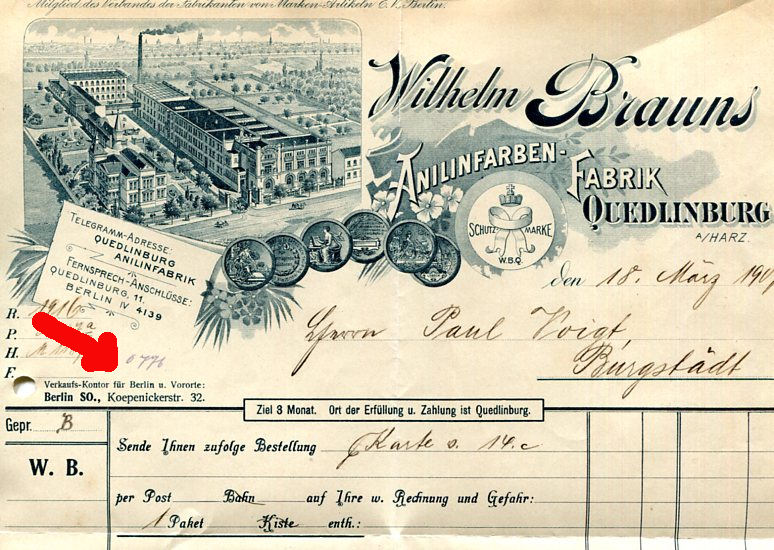 Mitglied des Verbandes der Fabrikanten von Marken-Artikeln E.V. Berlin.
Wilhelm Brauns
Anilinfarben-Fabrik
Quedlinburg
a/Harz.
Schutz Marke
W.B.Q.
Telegramm-Adresse:
Quedlinburg
Anilinfabrik
Fernsprech-Anschlüsse:
Quedlinburg, 11.
Berlin IV 4139
den 18. März 190
R. 1916
P.
H.
F.
Herrn Paul Voigt,
Burgstädt
Verkaufs-Kontor für Berlin u. Vororte:
Berlin SO., Koepenickerstr. 32.
Ziel 3 Monat. Ort der Erfüllung u. Zahlung ist Quedlinburg.
Gepr. B
W. B.
Sende Ihnen zufolge Bestellung Karte v. 14. c
per Post Bahn auf Ihre w. Rechnung und Gefahr:
1 Paket Kiste enth.: